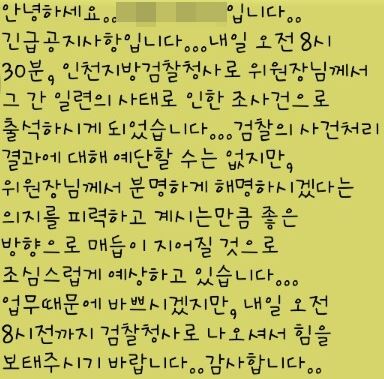 안녕하세요.. 입니다..
긴급공지사항입니다...내일 오전 8시
30분, 인천지방검찰청사로 위원장님께서
그 간 일련의 사태로 인한 조사건으로
출석하시게 되었습니다...검찰의 사건처리
결과에 대해 예단할 수는 없지만,
위원장님께서 분명하게 해명하시겠다는
의지를 피력하고 계시는만큼 좋은
방향으로 매듭이 지어질 것으로
조심스럽게 예상하고 있습니다...
업무때문에 바쁘시겠지만, 내일 오전
8시전까지 검찰청사로 나오셔서 힘을
보태주시기 바랍니다..감사합니다..